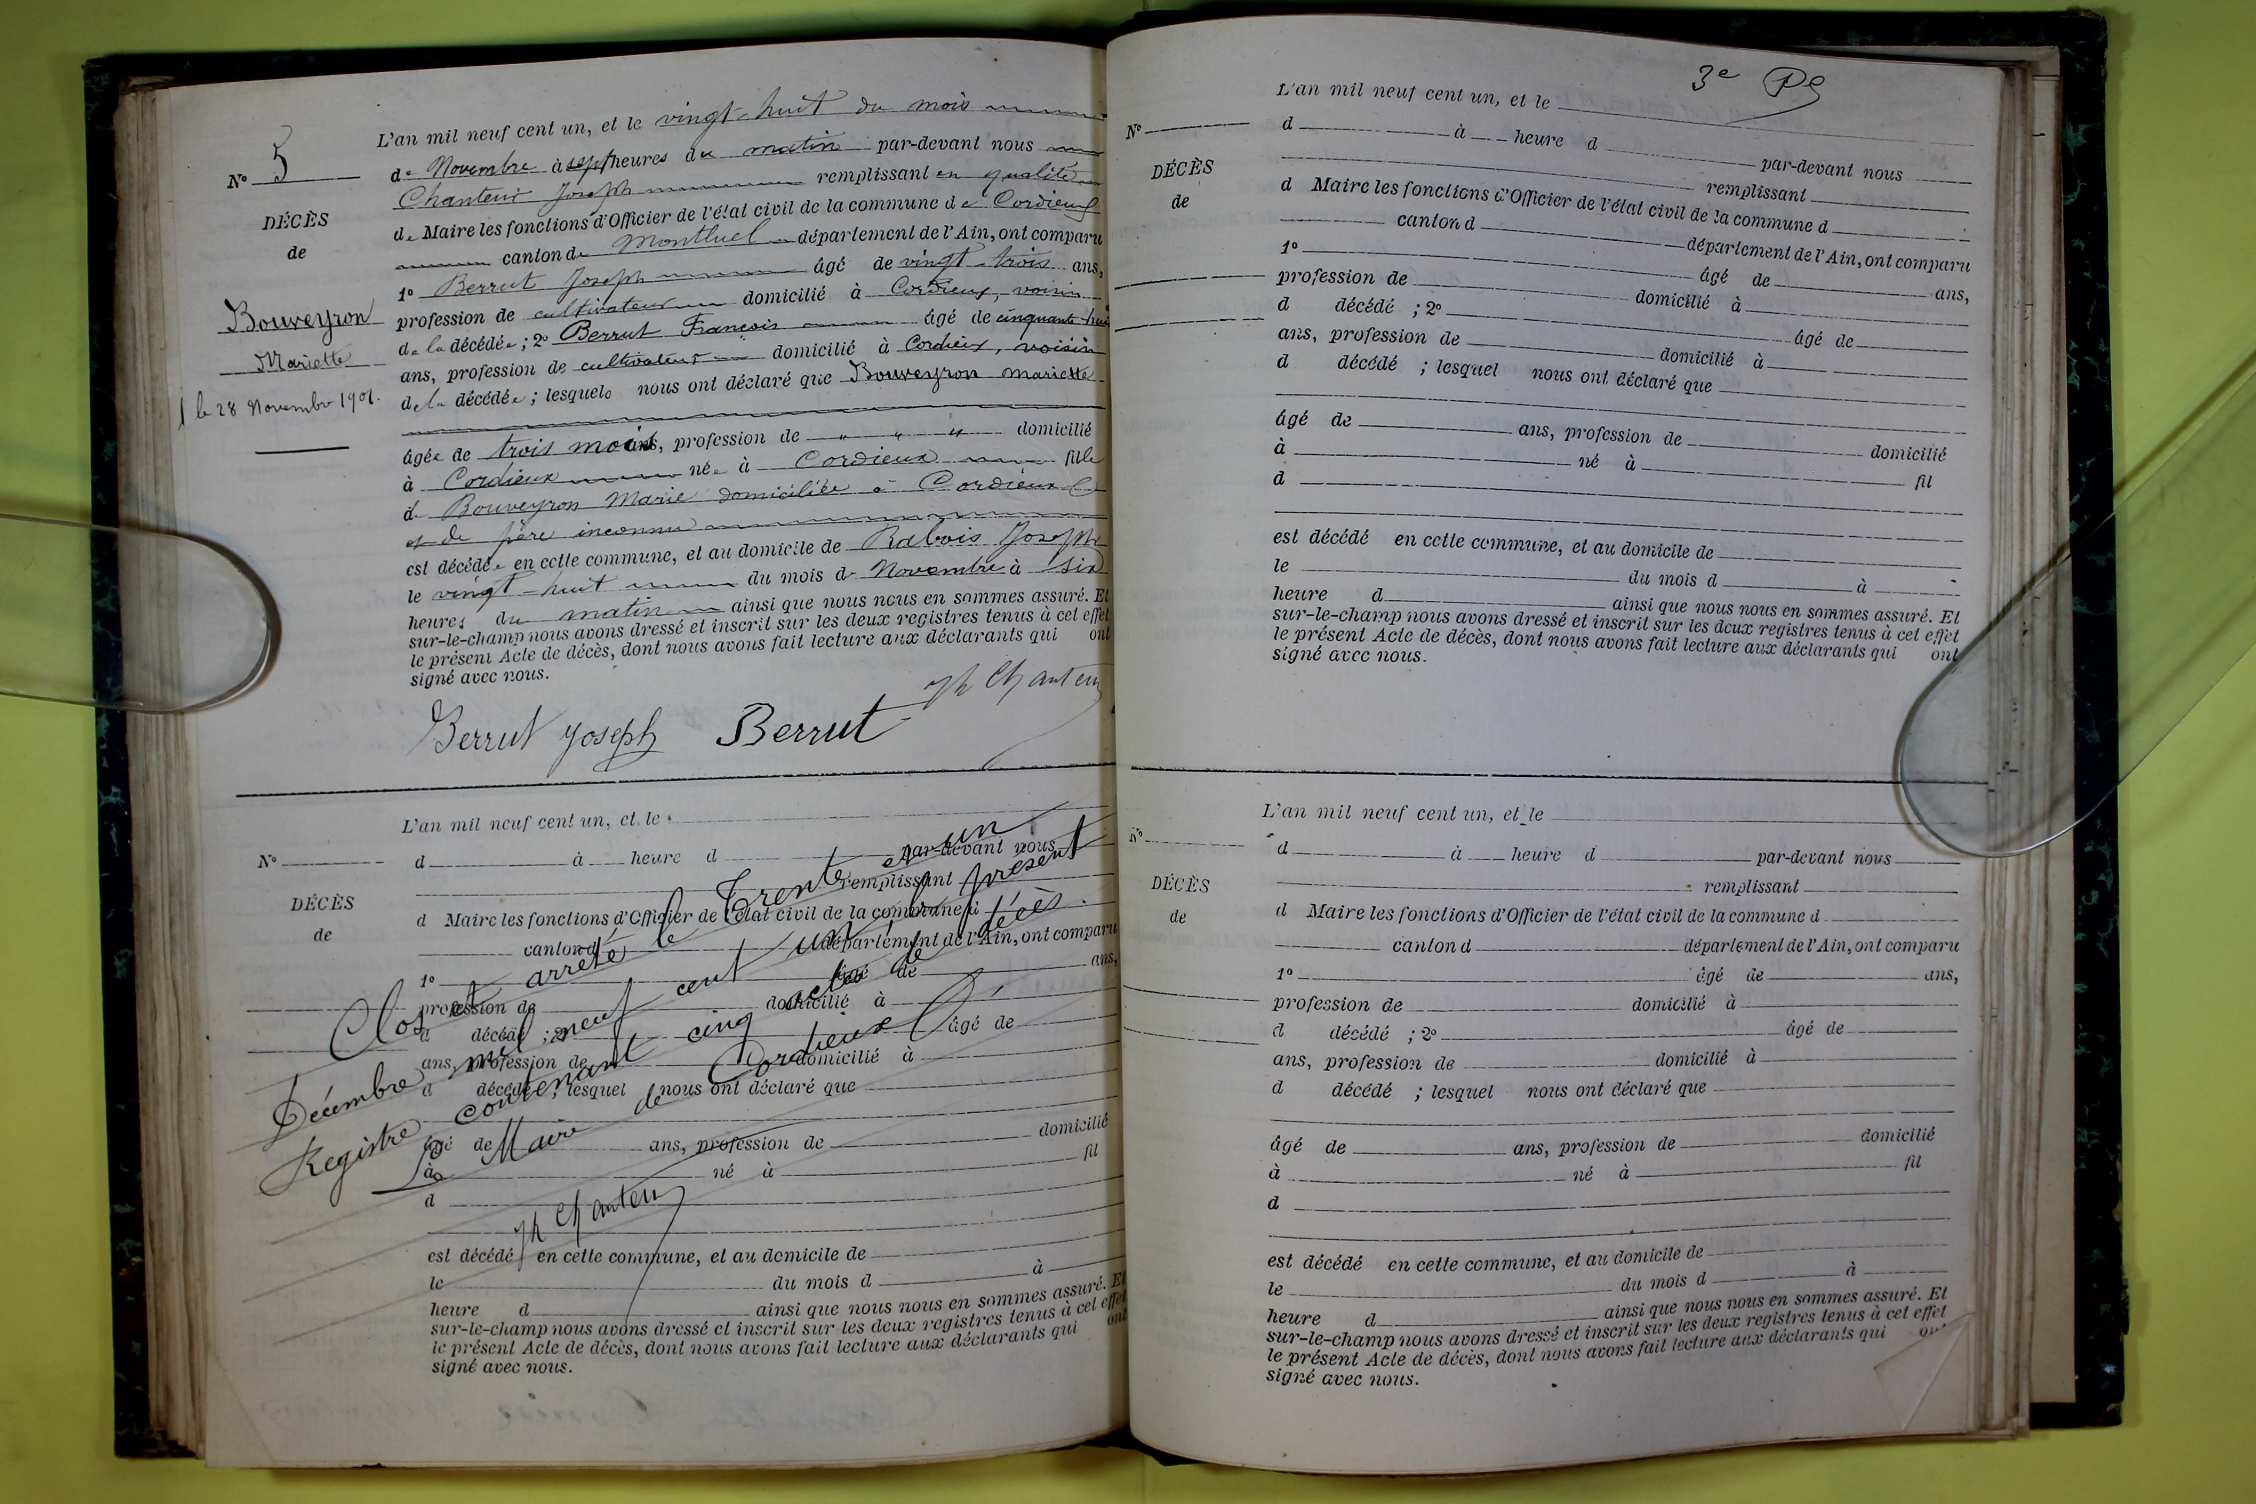 L'an mil neuf cent un, et le vingt-huit du mois
N° 5
de Novembre à sept heures du matin par-devant nous
Chanteur Joseph remplissant en qualité
DÉCÈS
de
de Maire les fonctions d'Officier de l'état civil de la commune de Cordieux
canton de Montluel département de l'Ain, ont comparu
1° Berrut Joseph âgé de vingt-trois ans,
Bouveyron
Mariette
profession de cultivateur domicilié à Cordieux, voisin
de la décédée ; 2° Berrut François âgé de cinquante-huit
ans, profession de cultivateur domicilié à Cordieux, voisin
le 28 Novembre 1901.
de la décédée ; lesquels nous ont déclaré que Bouveyron Mariette
âgée de trois mois ans, profession de " " " domicilié
à Cordieux née à Cordieux fille
de Bouveyron Marie domiciliée à Cordieux
et de père inconnu
est décédée en cette commune, et au domicile de Rabois Joseph
le vingt-huit du mois de Novembre à six
heures du matin ainsi que nous nous en sommes assuré. Et
sur-le-champ nous avons dressé et inscrit sur les deux registres tenus à cet effet
le présent Acte de décès, dont nous avons fait lecture aux déclarants qui ont
signé avec nous.
Berrut Joseph Berrut Jh Chanteur
L'an mil neuf cent un, et le
N°
d à heure d par-devant nous
remplissant
DÉCÈS
de
d Maire les fonctions d'Officier de l'état civil de la commune d
canton d département de l'Ain, ont comparu
1° âgé de ans,
profession de domicilié à
d décédé ; 2° âgé de
ans, profession de domicilié à
d décédé ; lesquel nous ont déclaré que
âgé de ans, profession de domicilié
à né à fil
d
est décédé en cette commune, et au domicile de
le du mois d à
heure d ainsi que nous nous en sommes assuré. Et
sur-le-champ nous avons dressé et inscrit sur les deux registres tenus à cet effet
le présent Acte de décès, dont nous avons fait lecture aux déclarants qui ont
signé avec nous.
Clos et arrêté le Trente et un
Décembre mil neuf cent un, le présent
Registre contenant cinq actes de décès.
Le Maire de Cordieux
Jh Chanteur
3e
L'an mil neuf cent un, et le
N°
d à heure d par-devant nous
remplissant
DÉCÈS
de
d Maire les fonctions d'Officier de l'état civil de la commune d
canton d département de l'Ain, ont comparu
1° âgé de ans,
profession de domicilié à
d décédé ; 2° âgé de
ans, profession de domicilié à
d décédé ; lesquel nous ont déclaré que
âgé de ans, profession de domicilié
à né à fil
d
est décédé en cette commune, et au domicile de
le du mois d à
heure d ainsi que nous nous en sommes assuré. Et
sur-le-champ nous avons dressé et inscrit sur les deux registres tenus à cet effet
le présent Acte de décès, dont nous avons fait lecture aux déclarants qui ont
signé avec nous.
L'an mil neuf cent un, et le
N°
d à heure d par-devant nous
remplissant
DÉCÈS
de
d Maire les fonctions d'Officier de l'état civil de la commune d
canton d département de l'Ain, ont comparu
1° âgé de ans,
profession de domicilié à
d décédé ; 2° âgé de
ans, profession de domicilié à
d décédé ; lesquel nous ont déclaré que
âgé de ans, profession de domicilié
à né à fil
d
est décédé en cette commune, et au domicile de
le du mois d à
heure d ainsi que nous nous en sommes assuré. Et
sur-le-champ nous avons dressé et inscrit sur les deux registres tenus à cet effet
le présent Acte de décès, dont nous avons fait lecture aux déclarants qui ont
signé avec nous.